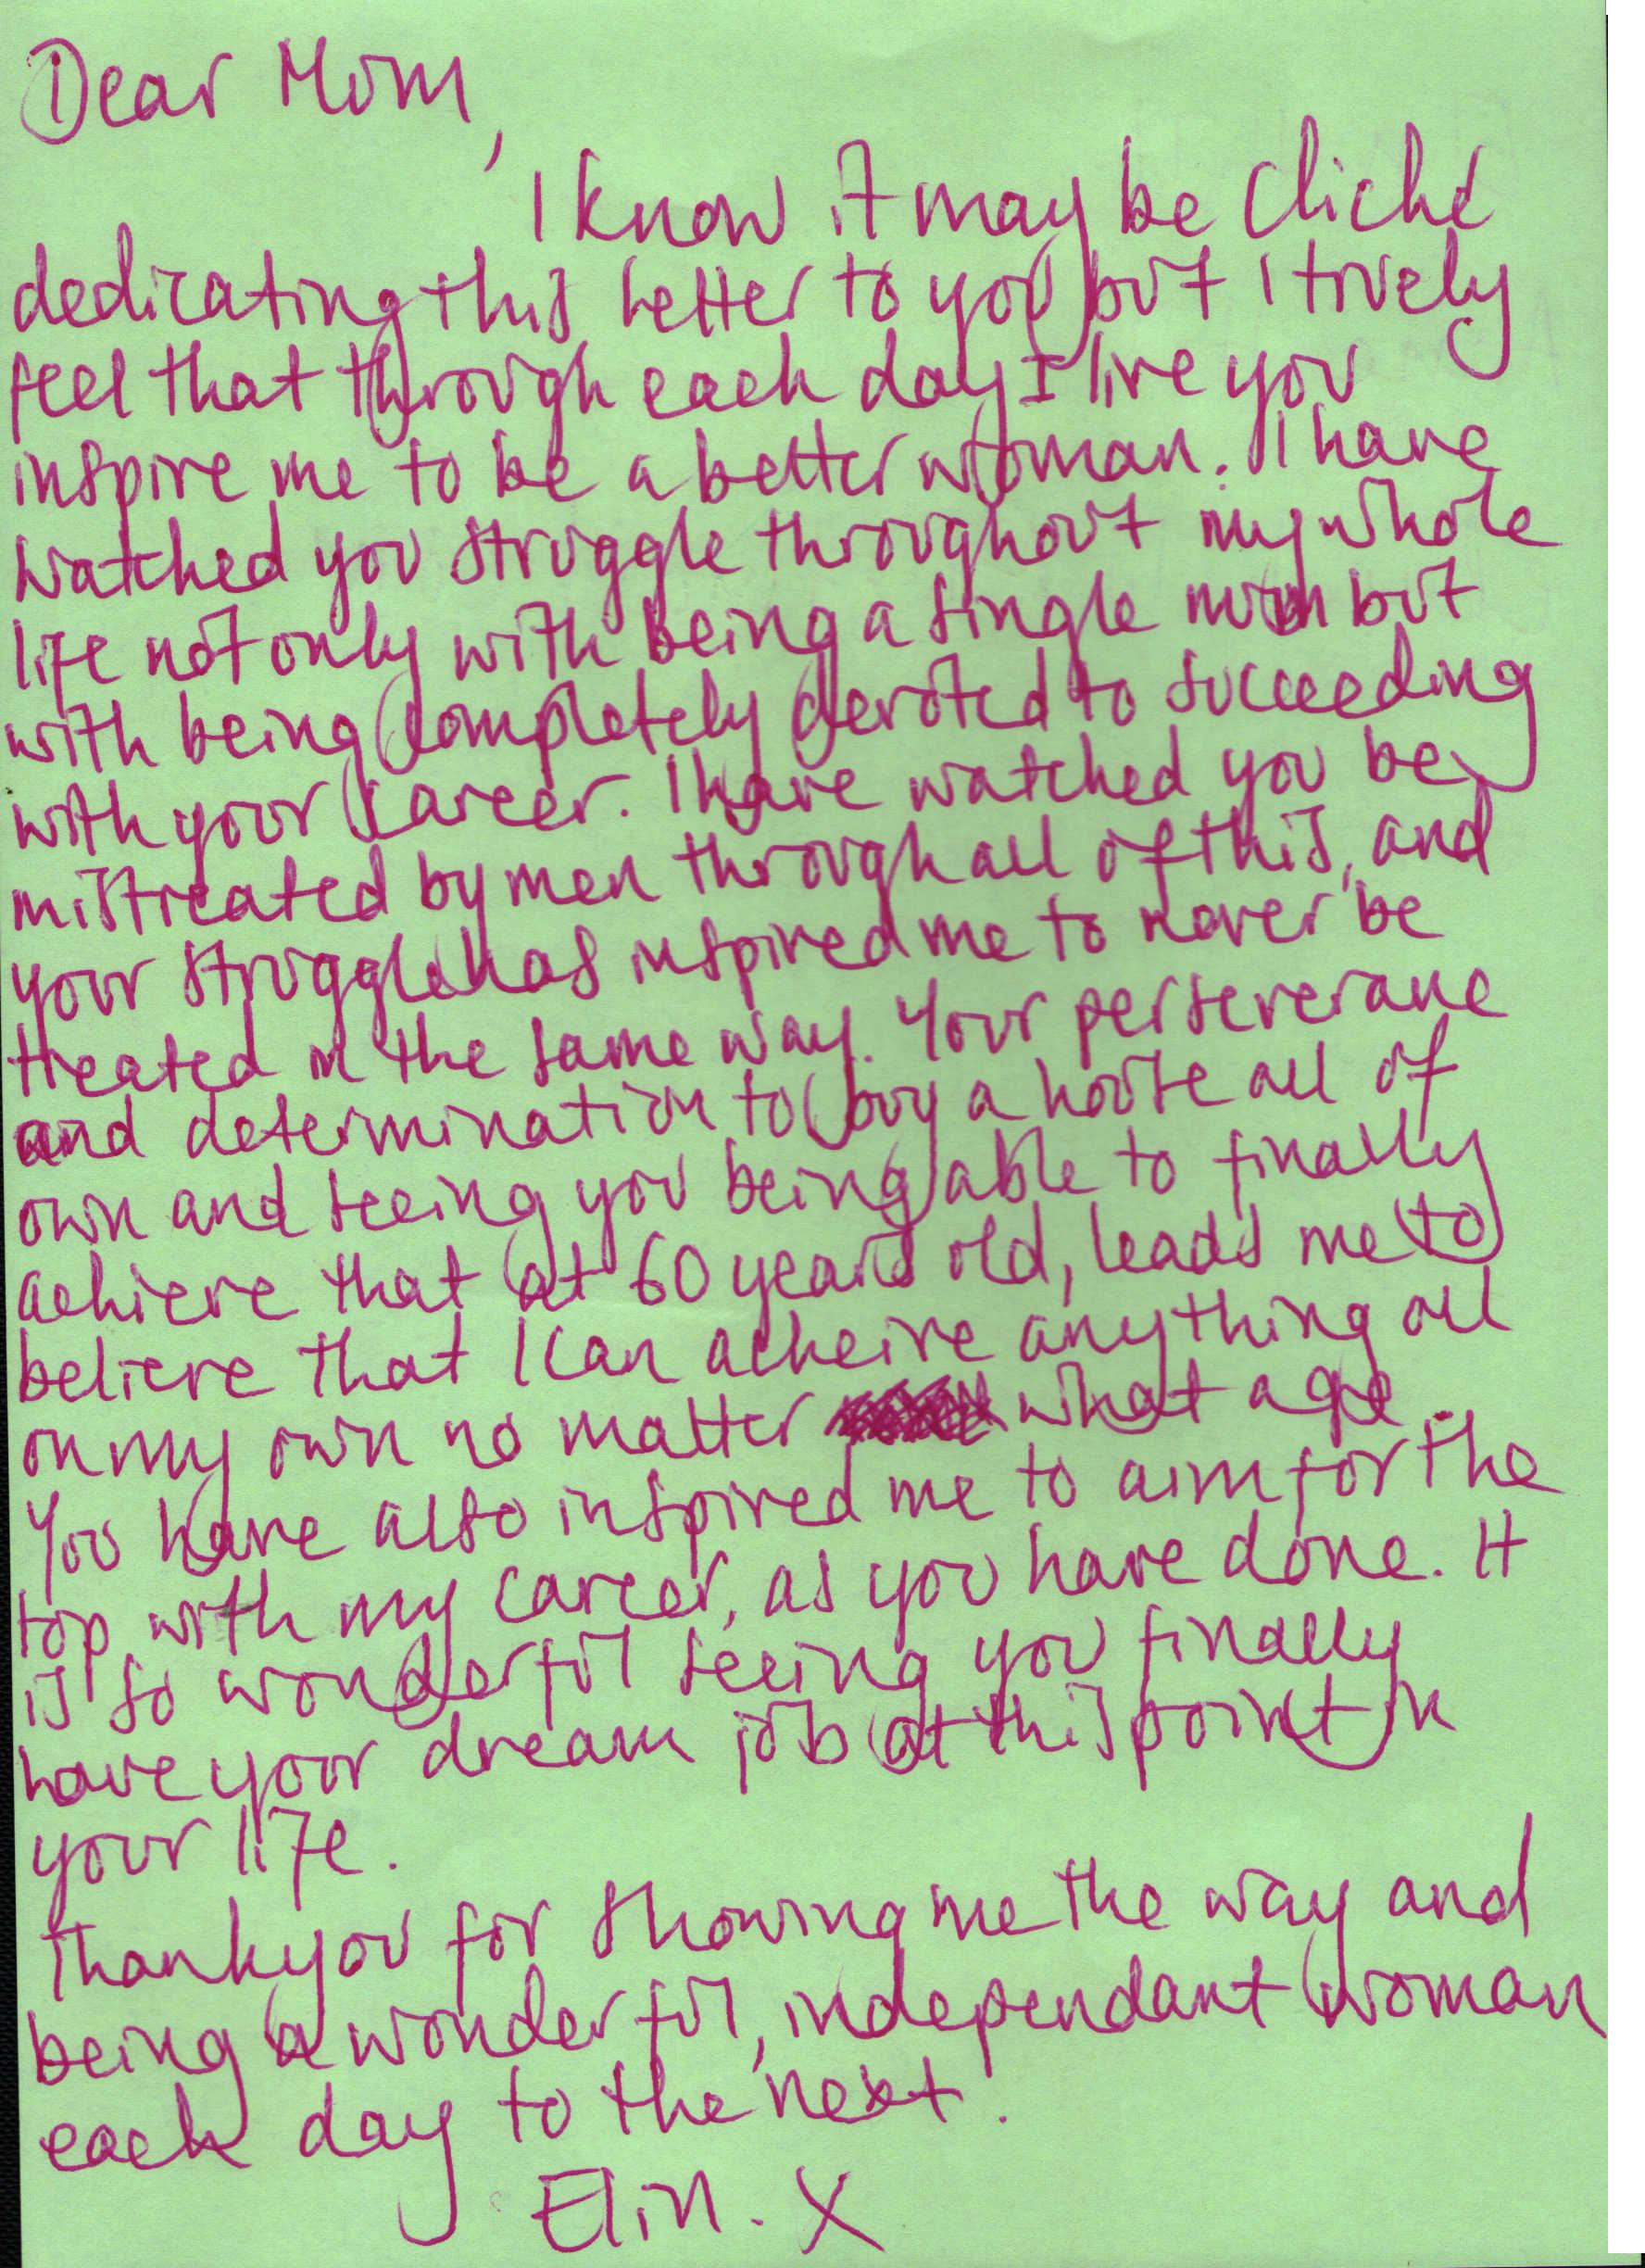 Dear Mom,
I know it may be cliché
dedicating this letter to you but I truely
feel that through each day I live you
inspire me to be a better woman. I have
watched you struggle throughout my whole
life not only with being a single mom but
with being completely devoted to succeeding
with your career. I have watched you be
mistreated by men through all of this, and
your struggle has inspired me to never be
treated in the same way. Your perseverane
and determination to buy a house all of
own and seeing you being able to finally
achieve that at 60 years old, leads me to
believe that I can acheive anything all
on my own no matter what age.
You have also inspired me to aim for the
top with my career, as you have done. It
is so wonderful seeing you finally
have your dream job at this point in
your life.
Thankyou for showing me the way and
being a wonderful, independant woman
each day to the next.
Elin. X